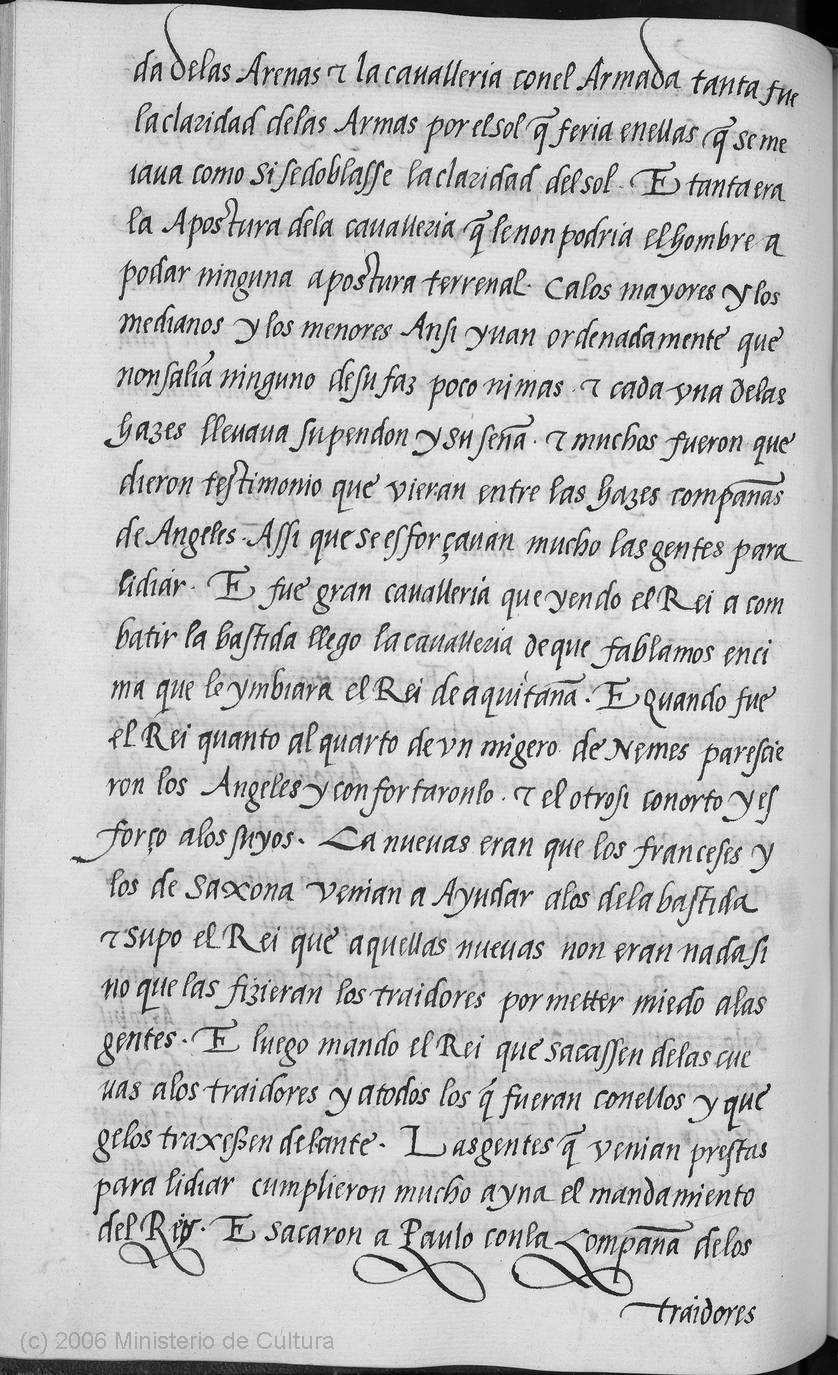 da delas Arenas ⁊ la cavalleria conel Armada tanta fue
la claridad delas Armas por el sol q̃ feria enellas q̃ se me
iaua como si se doblasse la claridad del sol. E tanta era
la Apostura dela cavalleria q̃ le non podria el hombre a
podar ninguna apostura terrenal. Ca los mayores y los
medianos y los menores Ansi yuan ordenadamente que
non saliã ninguno de su faz poco ni mas. ⁊ cada vna delas
hazes llevava su pendon y su señа. ⁊ muchos fueron que
dieron testimonio que vieran entre las hazes compañas
de Angeles. Assi que se esforçavan mucho las gentes para
lidiar. E fue gran cavalleria que yendo el Rei a com
batir la bastida llego la cavalleria de que fablamos enci
ma que le ymbiara el Rei de aquitaña. E quando fue
el Rei quanto al quarto de vn migero de Nemes parescie
ron los Angeles y confortaronlo. ⁊ el otrosi conorto y es
forço alos suyos. La nuevas eran que los franceses y
los de Saxona venian a Ayudar alos dela bastida
⁊ supo el Rei que aquellas nuevas non eran nada si
no que las fizieran los traidores por metter miedo alas
gentes. E luego mando el Rei que sacassen delas cue
uas alos traidores y a todos los q̃ fueran conellos y que
gelos traxeßen delante. Las gentes q̃ venian prestas
para lidiar cumplieron mucho ayna el mandamiento
del Rey. E sacaron a Paulo conla Compaña delos
traidores
(c) 2006 Ministerio de Cultura